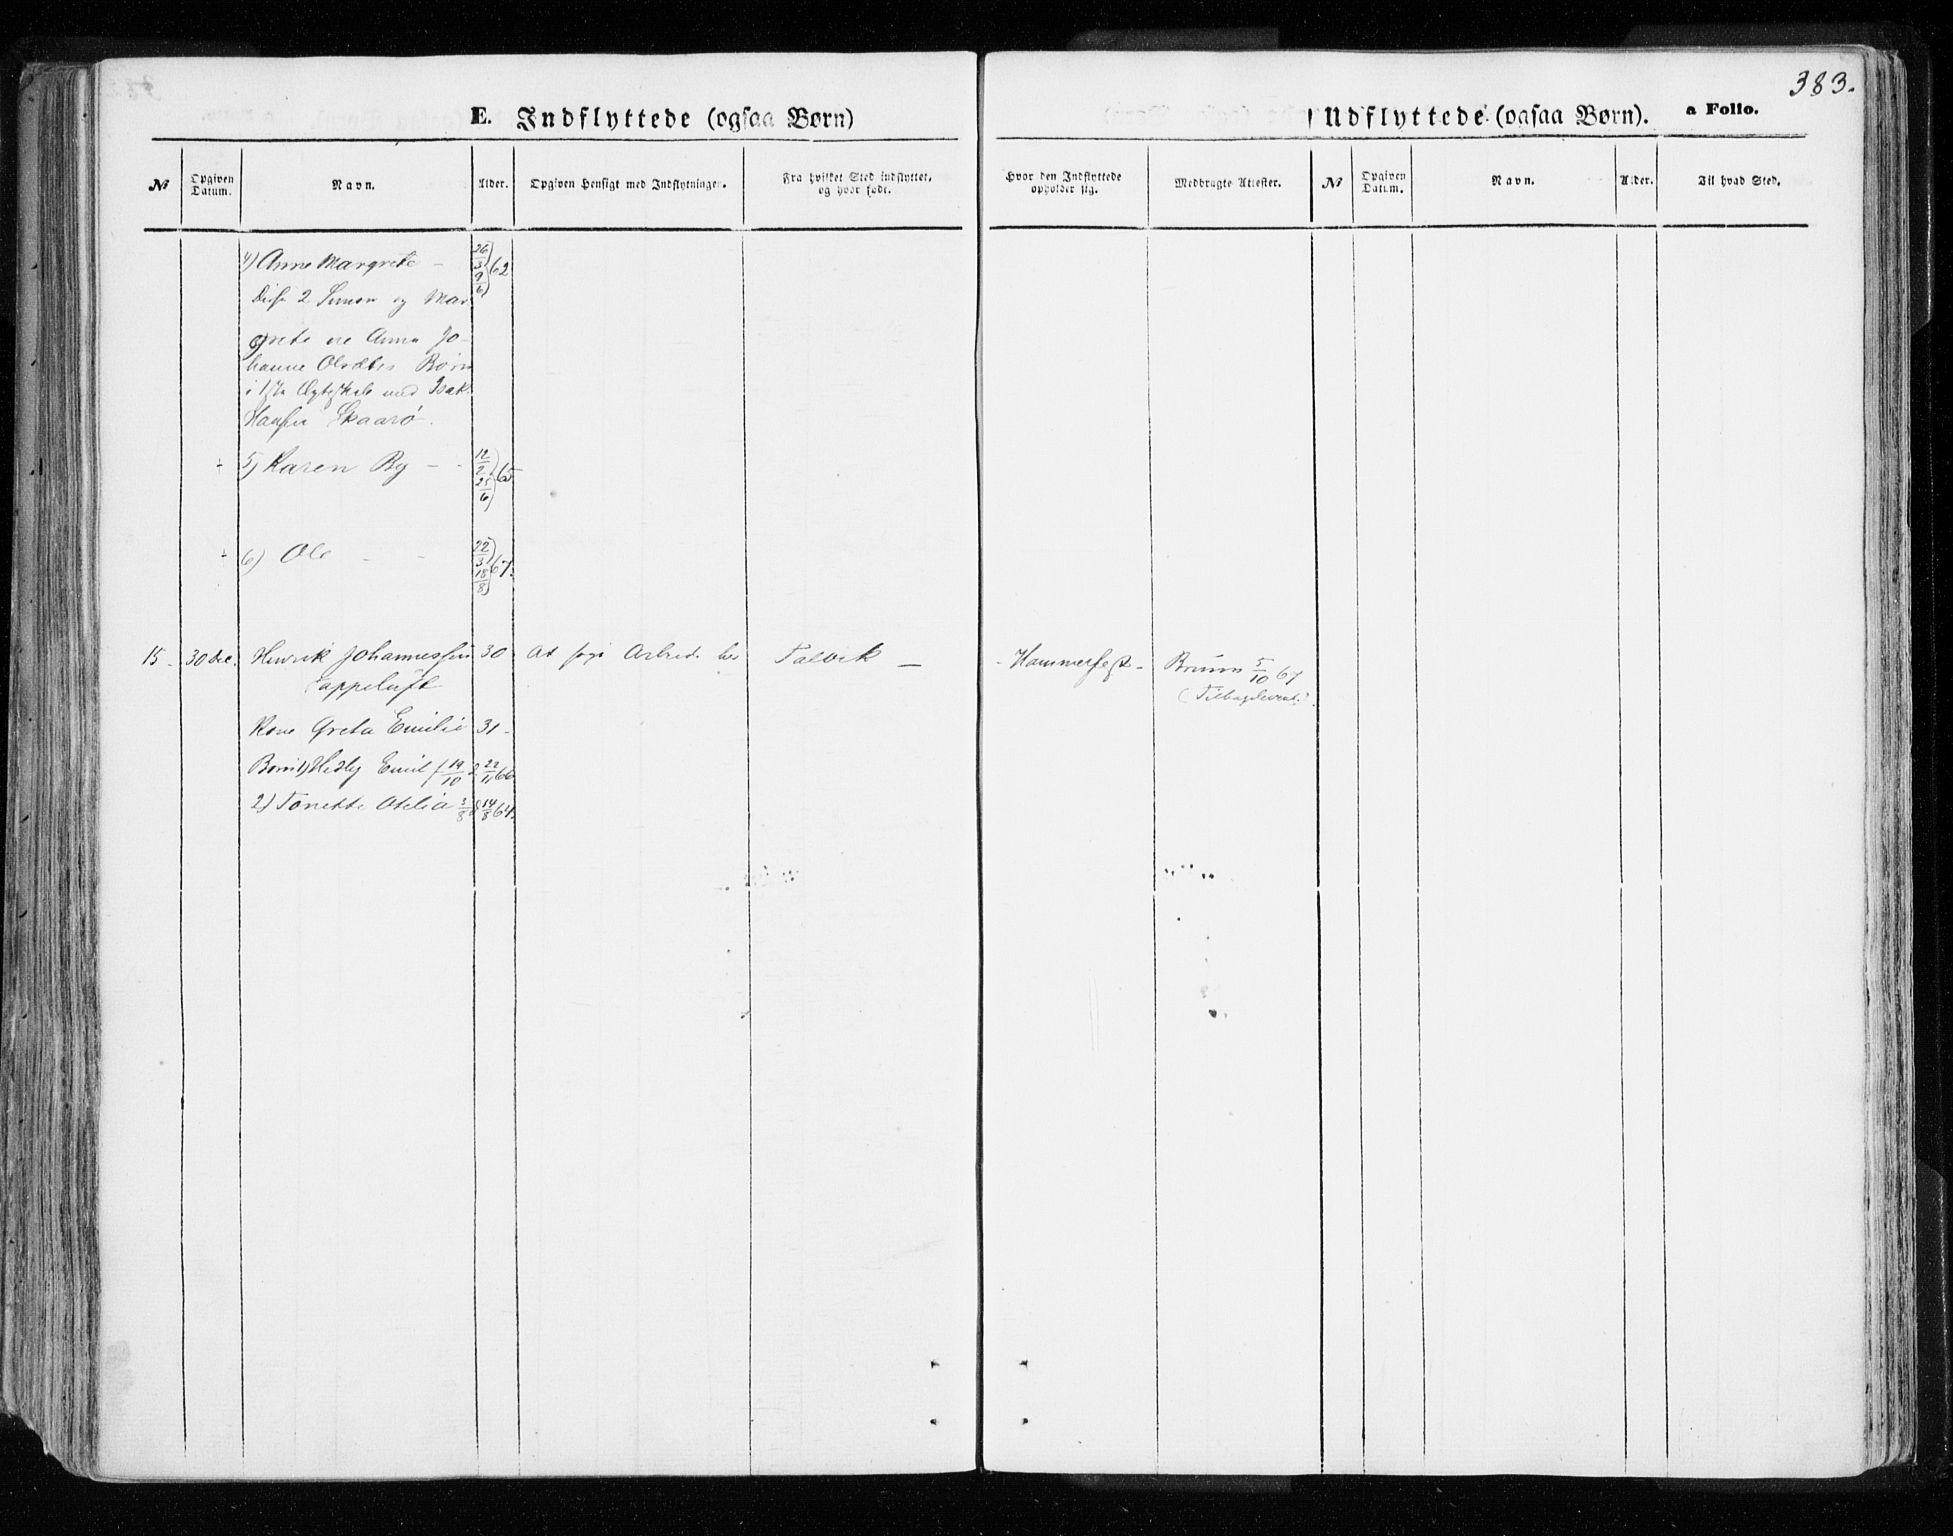 383.
E. Indflyttede (ogsaa Børn)
Udflyttede (ogsaa Børn). a Folio.
№
Opgiven Datum.
Navn.
Alder.
Opgiven Hensigt med Indflytningen.
Fra hvilket Sted indflyttet, og hvor født.
Hvor den Indflyttede opholder sig.
Medbragte Attester.
№
Opgiven Datum.
Navn.
Alder.
Til hvad Sted.
4) Anne Margrete - 26/3 9/6) 62
Disse 2 Simon og Mar
grete ere Anna Jo-
hanne Olsdtrs Børn
i 1ste Ægteskab med Isak
Hansen Skaarø.
÷ 5) Karen By - - 12/2 25/6) 65
÷ 6) Ole - - 22/3 18/8) 67.
15. 30 dec. Henrik Johannessen 30 At søge Arbeid her Talvik - - Hammerfest - Bruun 5/10 67
Kappeluft (Tilbagelevert.)
Kone Greta Emilie 31 -
Børn 1) Hedly Emil f 14/10 d 22/11 66
2) Tonette Otelia 3/8 d 14/8 64.